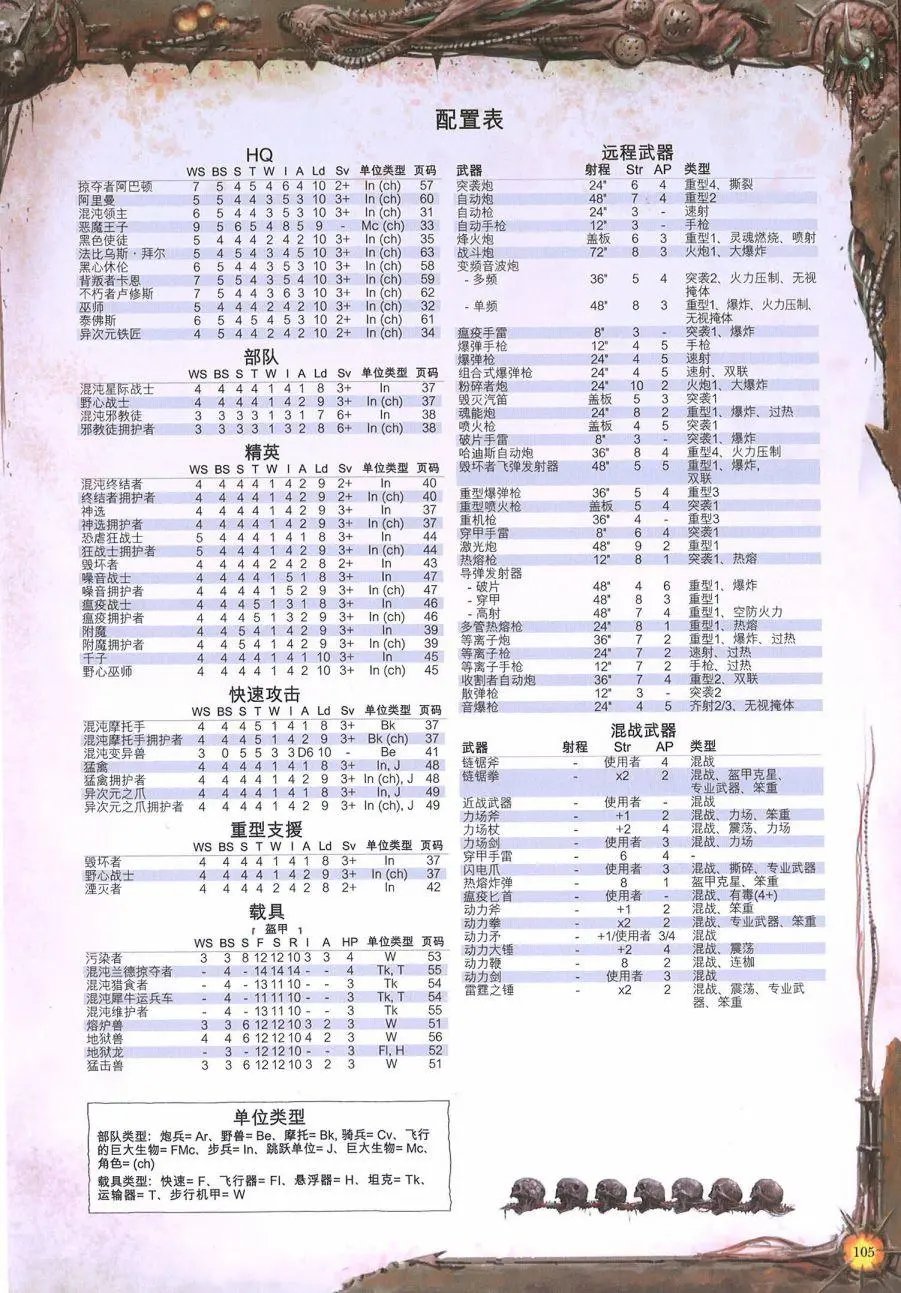 配置表
HQ
WS BS S T W I A Ld Sv 单位类型 页码
掠夺者阿巴顿 7 5 4 5 4 6 4 10 2+ In (ch) 57
阿里曼 5 5 4 4 3 5 3 10 3+ In (ch) 60
混沌领主 6 5 4 4 3 5 3 10 3+ In (ch) 31
恶魔王子 9 5 6 5 4 8 5 9 - Mc (ch) 33
黑色使徒 5 4 4 4 2 4 2 10 3+ In (ch) 35
法比乌斯·拜尔 5 4 5 4 3 4 5 10 3+ In (ch) 63
黑心休伦 6 5 4 4 3 5 3 10 3+ In (ch) 58
背叛者卡恩 7 5 5 4 3 5 4 10 3+ In (ch) 59
不朽者卢修斯 7 5 4 4 3 6 3 10 3+ In (ch) 62
巫师 5 4 4 4 2 4 2 10 3+ In (ch) 32
泰佛斯 6 5 4 5 4 5 3 10 2+ In (ch) 61
异次元铁匠 4 5 4 4 2 4 2 10 2+ In (ch) 34
部队
WS BS S T W I A Ld Sv 单位类型 页码
混沌星际战士 4 4 4 4 1 4 1 8 3+ In 37
野心战士 4 4 4 4 1 4 2 9 3+ In (ch) 37
混沌邪教徒 3 3 3 3 1 3 1 7 6+ In 38
邪教徒拥护者 3 3 3 3 1 3 2 8 6+ In (ch) 38
精英
WS BS S T W I A Ld Sv 单位类型 页码
混沌终结者 4 4 4 4 1 4 2 9 2+ In 40
终结者拥护者 4 4 4 4 1 4 2 9 2+ In (ch) 40
神选 4 4 4 4 1 4 2 9 3+ In 37
神选拥护者 4 4 4 4 1 4 2 9 3+ In (ch) 37
恐虐狂战士 5 4 4 4 1 4 1 8 3+ In 44
狂战士拥护者 5 4 4 4 1 4 2 9 3+ In (ch) 44
毁坏者 4 4 4 4 2 4 2 8 2+ In 43
噪音战士 4 4 4 4 1 5 1 8 3+ In 47
噪音拥护者 4 4 4 4 1 5 2 9 3+ In (ch) 47
瘟疫战士 4 4 4 5 1 3 1 8 3+ In 46
瘟疫拥护者 4 4 4 5 1 3 2 9 3+ In (ch) 46
附魔 4 4 5 4 1 4 2 9 3+ In 39
附魔拥护者 4 4 5 4 1 4 2 9 3+ In (ch) 39
千子 4 4 4 4 1 4 1 10 3+ In 45
野心巫师 4 4 4 4 1 4 2 10 3+ In (ch) 45
快速攻击
WS BS S T W I A Ld Sv 单位类型 页码
混沌摩托手 4 4 4 5 1 4 1 8 3+ Bk 37
混沌摩托手拥护者 4 4 4 5 1 4 2 9 3+ Bk (ch) 37
混沌变异兽 3 0 5 5 3 3 D6 10 - Be 41
猛禽 4 4 4 4 1 4 1 8 3+ In, J 48
猛禽拥护者 4 4 4 4 1 4 2 9 3+ In (ch), J 48
异次元之爪 4 4 4 4 1 4 1 9 3+ In, J 49
异次元之爪拥护者 4 4 4 4 1 4 2 9 3+ In (ch), J 49
重型支援
WS BS S T W I A Ld Sv 单位类型 页码
毁坏者 4 4 4 4 1 4 1 8 3+ In 37
野心战士 4 4 4 4 1 4 2 9 3+ In (ch) 37
湮灭者 4 4 4 4 2 4 2 8 2+ In 42
载具
┌ 盔甲 ┐
WS BS S F S R I A HP 单位类型 页码
污染者 3 3 8 12 12 10 3 3 4 W 53
混沌兰德掠夺者 - 4 - 14 14 14 - - 4 Tk, T 55
混沌猎食者 - 4 - 13 11 10 - - 3 Tk 54
混沌犀牛运兵车 - 4 - 11 11 10 - - 3 Tk, T 54
混沌维护者 - 4 - 13 11 10 - - 3 Tk 55
熔炉兽 3 3 6 12 12 10 3 2 3 W 51
地狱兽 4 4 6 12 12 10 4 2 3 W 56
地狱龙 - 3 - 12 12 10 - - 3 Fl, H 52
猛击兽 3 3 6 12 12 10 3 2 3 W 51
单位类型
部队类型：炮兵= Ar、野兽= Be、摩托= Bk, 骑兵= Cv、飞行
的巨大生物= FMc、步兵= In、跳跃单位= J、巨大生物= Mc、
角色= (ch)
载具类型：快速= F、飞行器= Fl、悬浮器= H、坦克= Tk、
运输器= T、步行机甲= W
远程武器
武器 射程 Str AP 类型
突袭炮 24" 6 4 重型4、撕裂
自动炮 48" 7 4 重型2
自动枪 24" 3 - 速射
自动手枪 12" 3 - 手枪
烽火炮 盖板 6 3 重型1、灵魂燃烧、喷射
战斗炮 72" 8 3 火炮1、大爆炸
变频音波炮
- 多频 36" 5 4 突袭2、火力压制、无视
掩体
- 单频 48" 8 3 重型1、爆炸、火力压制、
无视掩体
瘟疫手雷 8" 3 - 突袭1、爆炸
爆弹手枪 12" 4 5 手枪
爆弹枪 24" 4 5 速射
组合式爆弹枪 24" 4 5 速射、双联
粉碎者炮 24" 10 2 火炮1、大爆炸
毁灭汽笛 盖板 5 3 突袭1
魂能炮 24" 8 2 重型1、爆炸、过热
喷火枪 盖板 4 5 突袭1
破片手雷 8" 3 - 突袭1、爆炸
哈迪斯自动炮 36" 8 4 重型4、火力压制
毁坏者飞弹发射器 48" 5 5 重型1、爆炸,
双联
重型爆弹枪 36" 5 4 重型3
重型喷火枪 盖板 5 4 突袭1
重机枪 36" 4 - 重型3
穿甲手雷 8" 6 4 突袭1
激光炮 48" 9 2 重型1
热熔枪 12" 8 1 突袭1、热熔
导弹发射器
- 破片 48" 4 6 重型1、爆炸
- 穿甲 48" 8 3 重型1
- 高射 48" 7 4 重型1、空防火力
多管热熔枪 24" 8 1 重型1、热熔
等离子炮 36" 7 2 重型1、爆炸、过热
等离子枪 24" 7 2 速射、过热
等离子手枪 12" 7 2 手枪、过热
收割者自动炮 36" 7 4 重型2、双联
散弹枪 12" 3 - 突袭2
音爆枪 24" 4 5 齐射2/3、无视掩体
混战武器
武器 射程 Str AP 类型
链锯斧 - 使用者 4 混战
链锯拳 - x2 2 混战、盔甲克星、
专业武器、笨重
近战武器 - 使用者 - 混战
力场斧 - +1 2 混战、力场、笨重
力场杖 - +2 4 混战、震荡、力场
力场剑 - 使用者 3 混战、力场
穿甲手雷 - 6 4 -
闪电爪 - 使用者 3 混战、撕碎、专业武器
热熔炸弹 - 8 1 盔甲克星、笨重
瘟疫匕首 - 使用者 - 混战、有毒(4+)
动力斧 - +1 2 混战、笨重
动力拳 - x2 2 混战、专业武器、笨重
动力矛 - +1/使用者 3/4 混战
动力大锤 - +2 4 混战、震荡
动力鞭 - 8 2 混战、连枷
动力剑 - 使用者 3 混战
雷霆之锤 - x2 2 混战、震荡、专业武
器、笨重
105